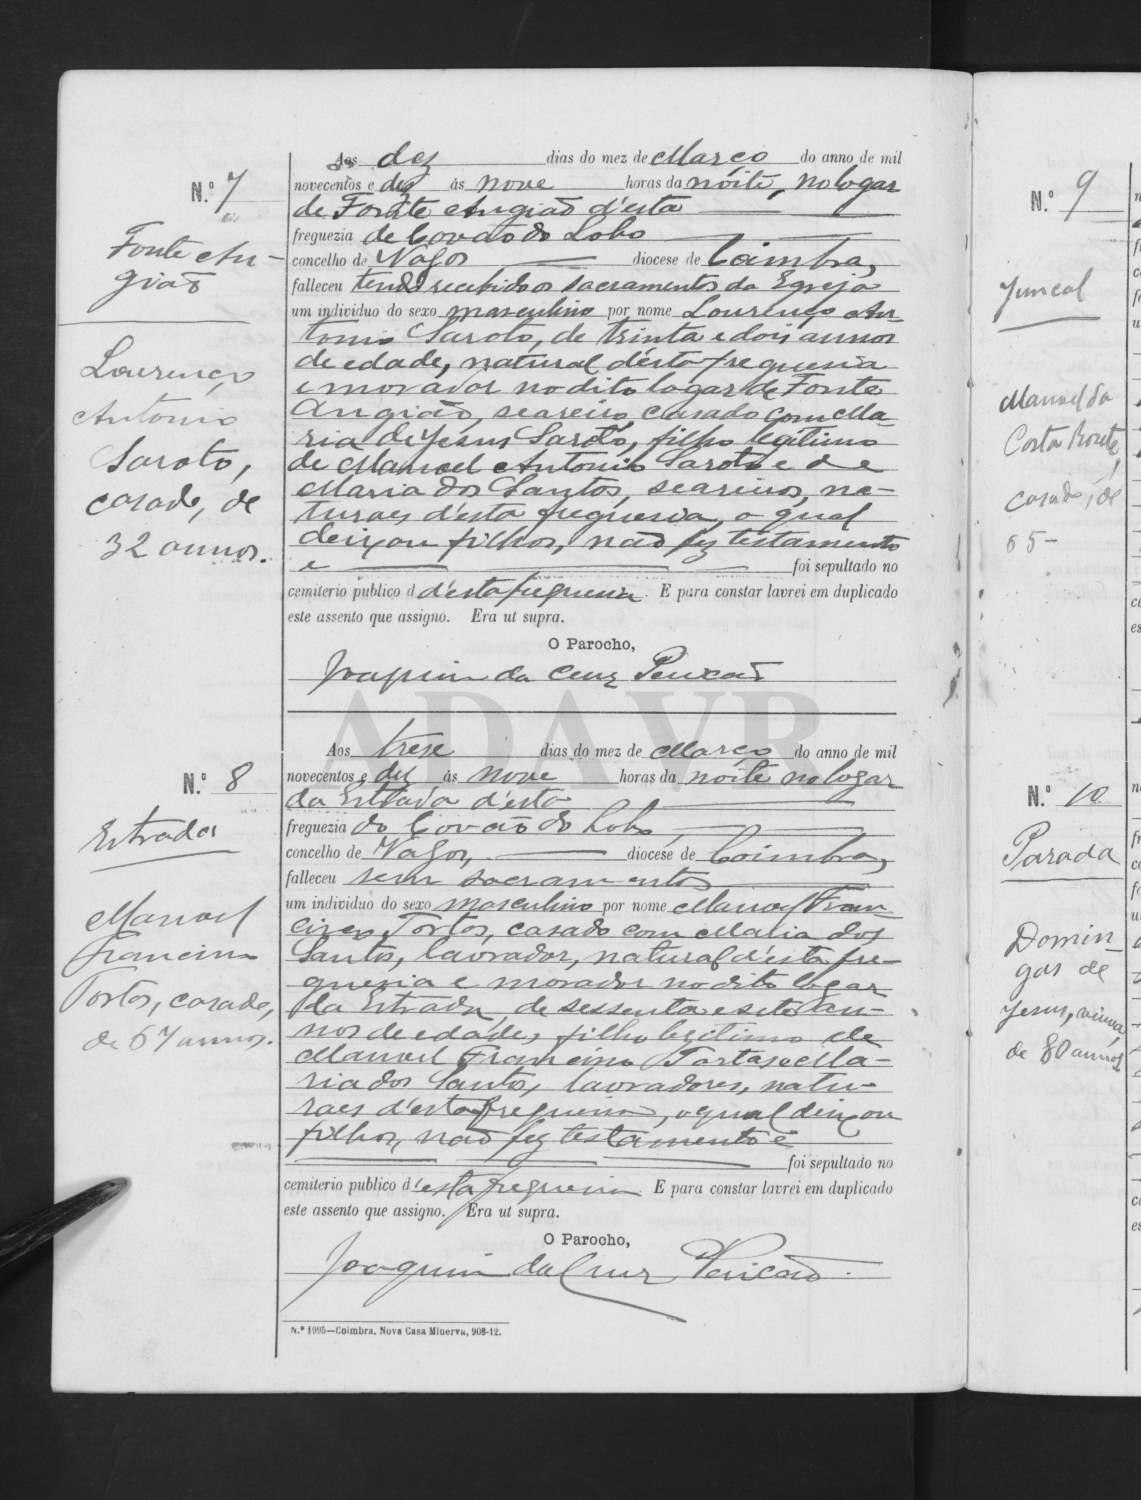 N.º 7
Fonte An-
gião
Lourenço
Antonio
Saroto,
casado, de
32 annos.
Aos dez dias do mez de Março do anno de mil
novecentos e dez ás nove horas da noite, no logar
de Fonte Angião d'esta
freguezia de Covão do Lobo
concelho de Vagos diocese de Coimbra,
falleceu tendo recebido os sacramentos da Egreja
um individuo do sexo masculino por nome Lourenço An-
tonio Saroto, de trinta e dois annos
de edade, natural d'esta freguesia
e morador no dito logar de Fonte
Angião, seareiro, casado com Ma-
ria de Jesus Saroto, filho legitimo
de Manoel Antonio Saroto e de
Maria dos Santos, seareiros, na-
turaes d'esta freguesia, o qual
deixou filhos, não fez testamento
e foi sepultado no
cemiterio publico d d'esta freguesia. E para constar lavrei em duplicado
este assento que assigno. Era ut supra.
O Parocho,
Joaquim da Cruz Peixão
ADAVR
N.º 8
Estrada
Manoel
Francisco
Tortas, casado,
de 67 annos.
Aos trese dias do mez de Março do anno de mil
novecentos e dez ás nove horas da noite no logar
da Estrada d'esta
freguezia do Covão do Lobo
concelho de Vagos, diocese de Coimbra,
falleceu sem sacramentos
um individuo do sexo masculino por nome Manoel Fran-
cisco Tortas, casado com Maria dos
Santos, lavrador, natural d'esta fre-
guesia e morador no dito logar
da Estrada, de sessenta e sete an-
nos de edade, filho legitimo de
Manoel Francisco Tortas e Ma-
ria dos Santos, lavradores, natu-
raes d'esta freguesia, o qual deixou
filhos, não fez testamento e
foi sepultado no
cemiterio publico d'esta freguesia. E para constar lavrei em duplicado
este assento que assigno. Era ut supra.
O Parocho,
Joaquim da Cruz Peixão.
N.º 1995—Coimbra, Nova Casa Minerva, 908-12.
N.º 9
Juncal
Manoel da
Costa
casado, de
65-
N.º 10
Parada
Domin-
gas de
Jesus, viuva,
de 80 annos